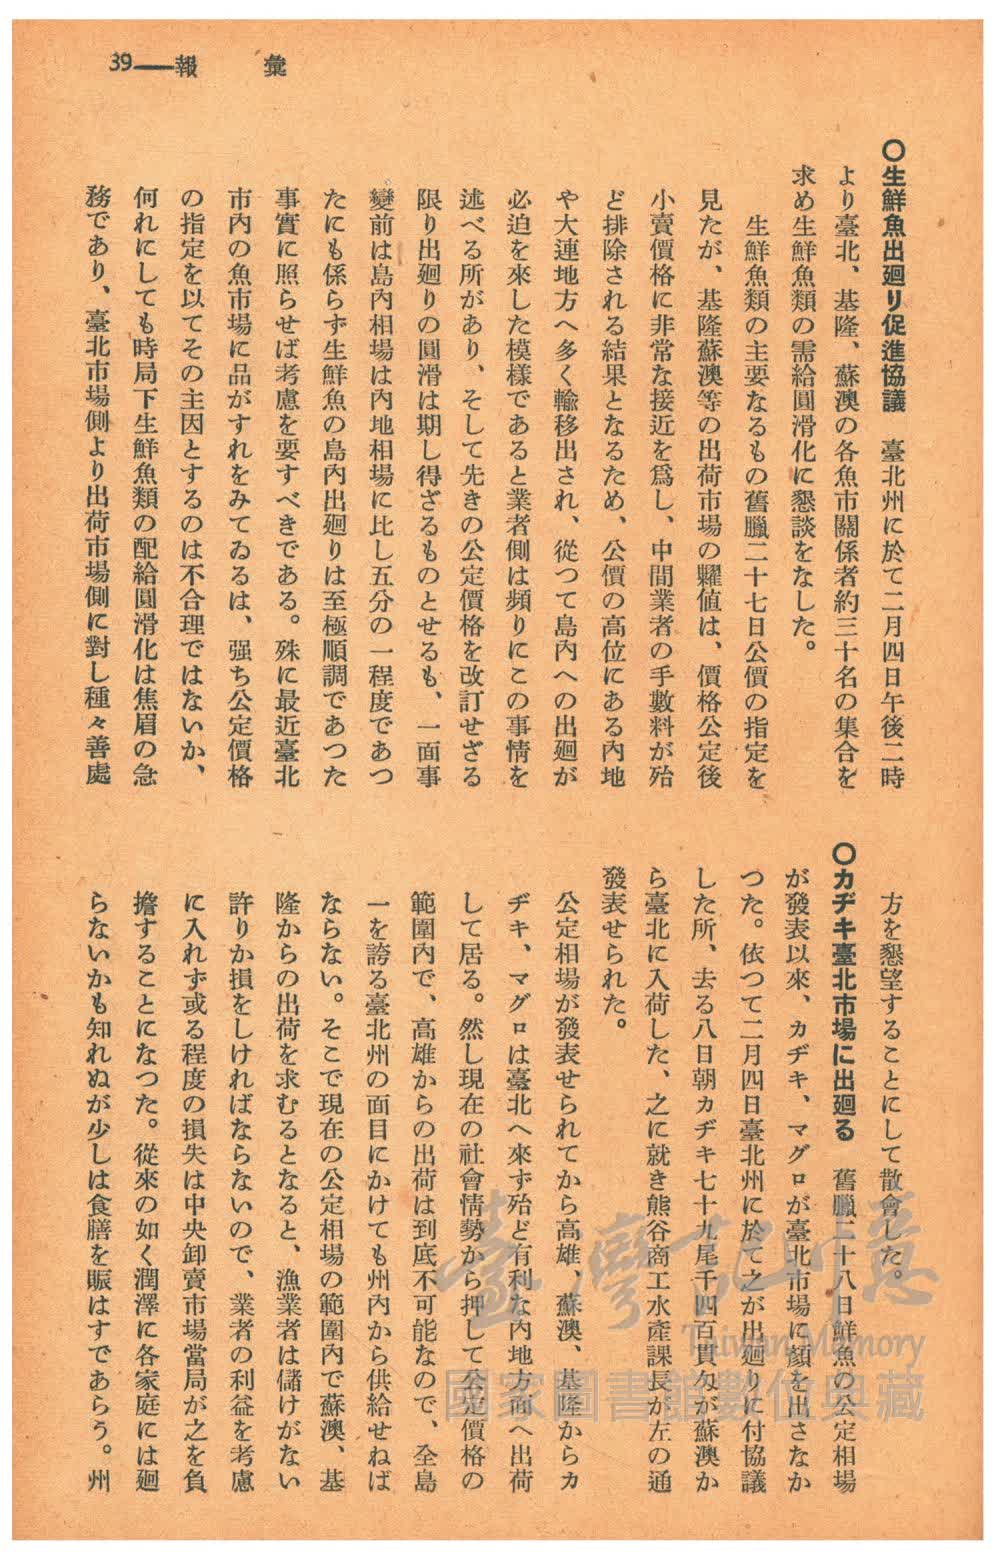 39——報彙
〇生鮮魚出廻り促進協議　臺北州に於て二月四日午後二時
より臺北、基隆、蘇澳の各魚市關係者約三十名の集合を
求め生鮮魚類の需給圓滑化に懇談をなした。
生鮮魚類の主要なるもの舊臘二十七日公價の指定を
見たが、基隆蘇澳等の出荷市場の糶値は、價格公定後
小賣價格に非常な接近を爲し、中間業者の手數料が殆
ど排除される結果となるため、公價の高位にある內地
や大連地方へ多く輸移出され、從つて島內への出廻が
必迫を來した模樣であると業者側は頻りにこの事情を
述べる所があり、そして先きの公定價格を改訂せざる
限り出廻りの圓滑は期し得ざるものとせるも、一面事
變前は島內相場は內地相場に比し五分の一程度であつ
たにも係らず生鮮魚の島內出廻りは至極順調であつた
事實に照らせば考慮を要すべきである。殊に最近臺北
市內の魚市場に品がすれをみてゐるは、强ち公定價格
の指定を以てその主因とするのは不合理ではないか、
何れにしても時局下生鮮魚類の配給圓滑化は焦眉の急
務であり、臺北市場側より出荷市場側に對し種々善處
方を懇望することにして散會した。
〇カヂキ臺北市場に出廻る　舊臘二十八日鮮魚の公定相場
が發表以來、カヂキ、マグロが臺北市場に顏を出さなか
つた。依つて二月四日臺北州に於て之が出廻りに付協議
した所、去る八日朝カヂキ七十九尾千四百貫匁が蘇澳か
ら臺北に入荷した、之に就き熊谷商工水產課長が左の通
發表せられた。
公定相場が發表せられてから高雄、蘇澳、基隆からカ
ヂキ、マグロは臺北へ來ず殆ど有利な內地方面へ出荷
して居る。然し現在の社會情勢から押して公定價格の
範圍內で、高雄からの出荷は到底不可能なので、全島
一を誇る臺北州の面目にかけても州內から供給せねば
ならない。そこで現在の公定相場の範圍內で蘇澳、基
隆からの出荷を求むるとなると、漁業者は儲けがない
許りか損をしければならないので、業者の利益を考慮
に入れず或る程度の損失は中央卸賣市場當局が之を負
擔することになつた。從來の如く潤澤に各家庭には廻
らないかも知れぬが少しは食膳を賑はすであらう。州
臺灣記憶
Taiwan Memory
國家圖書館數位典藏